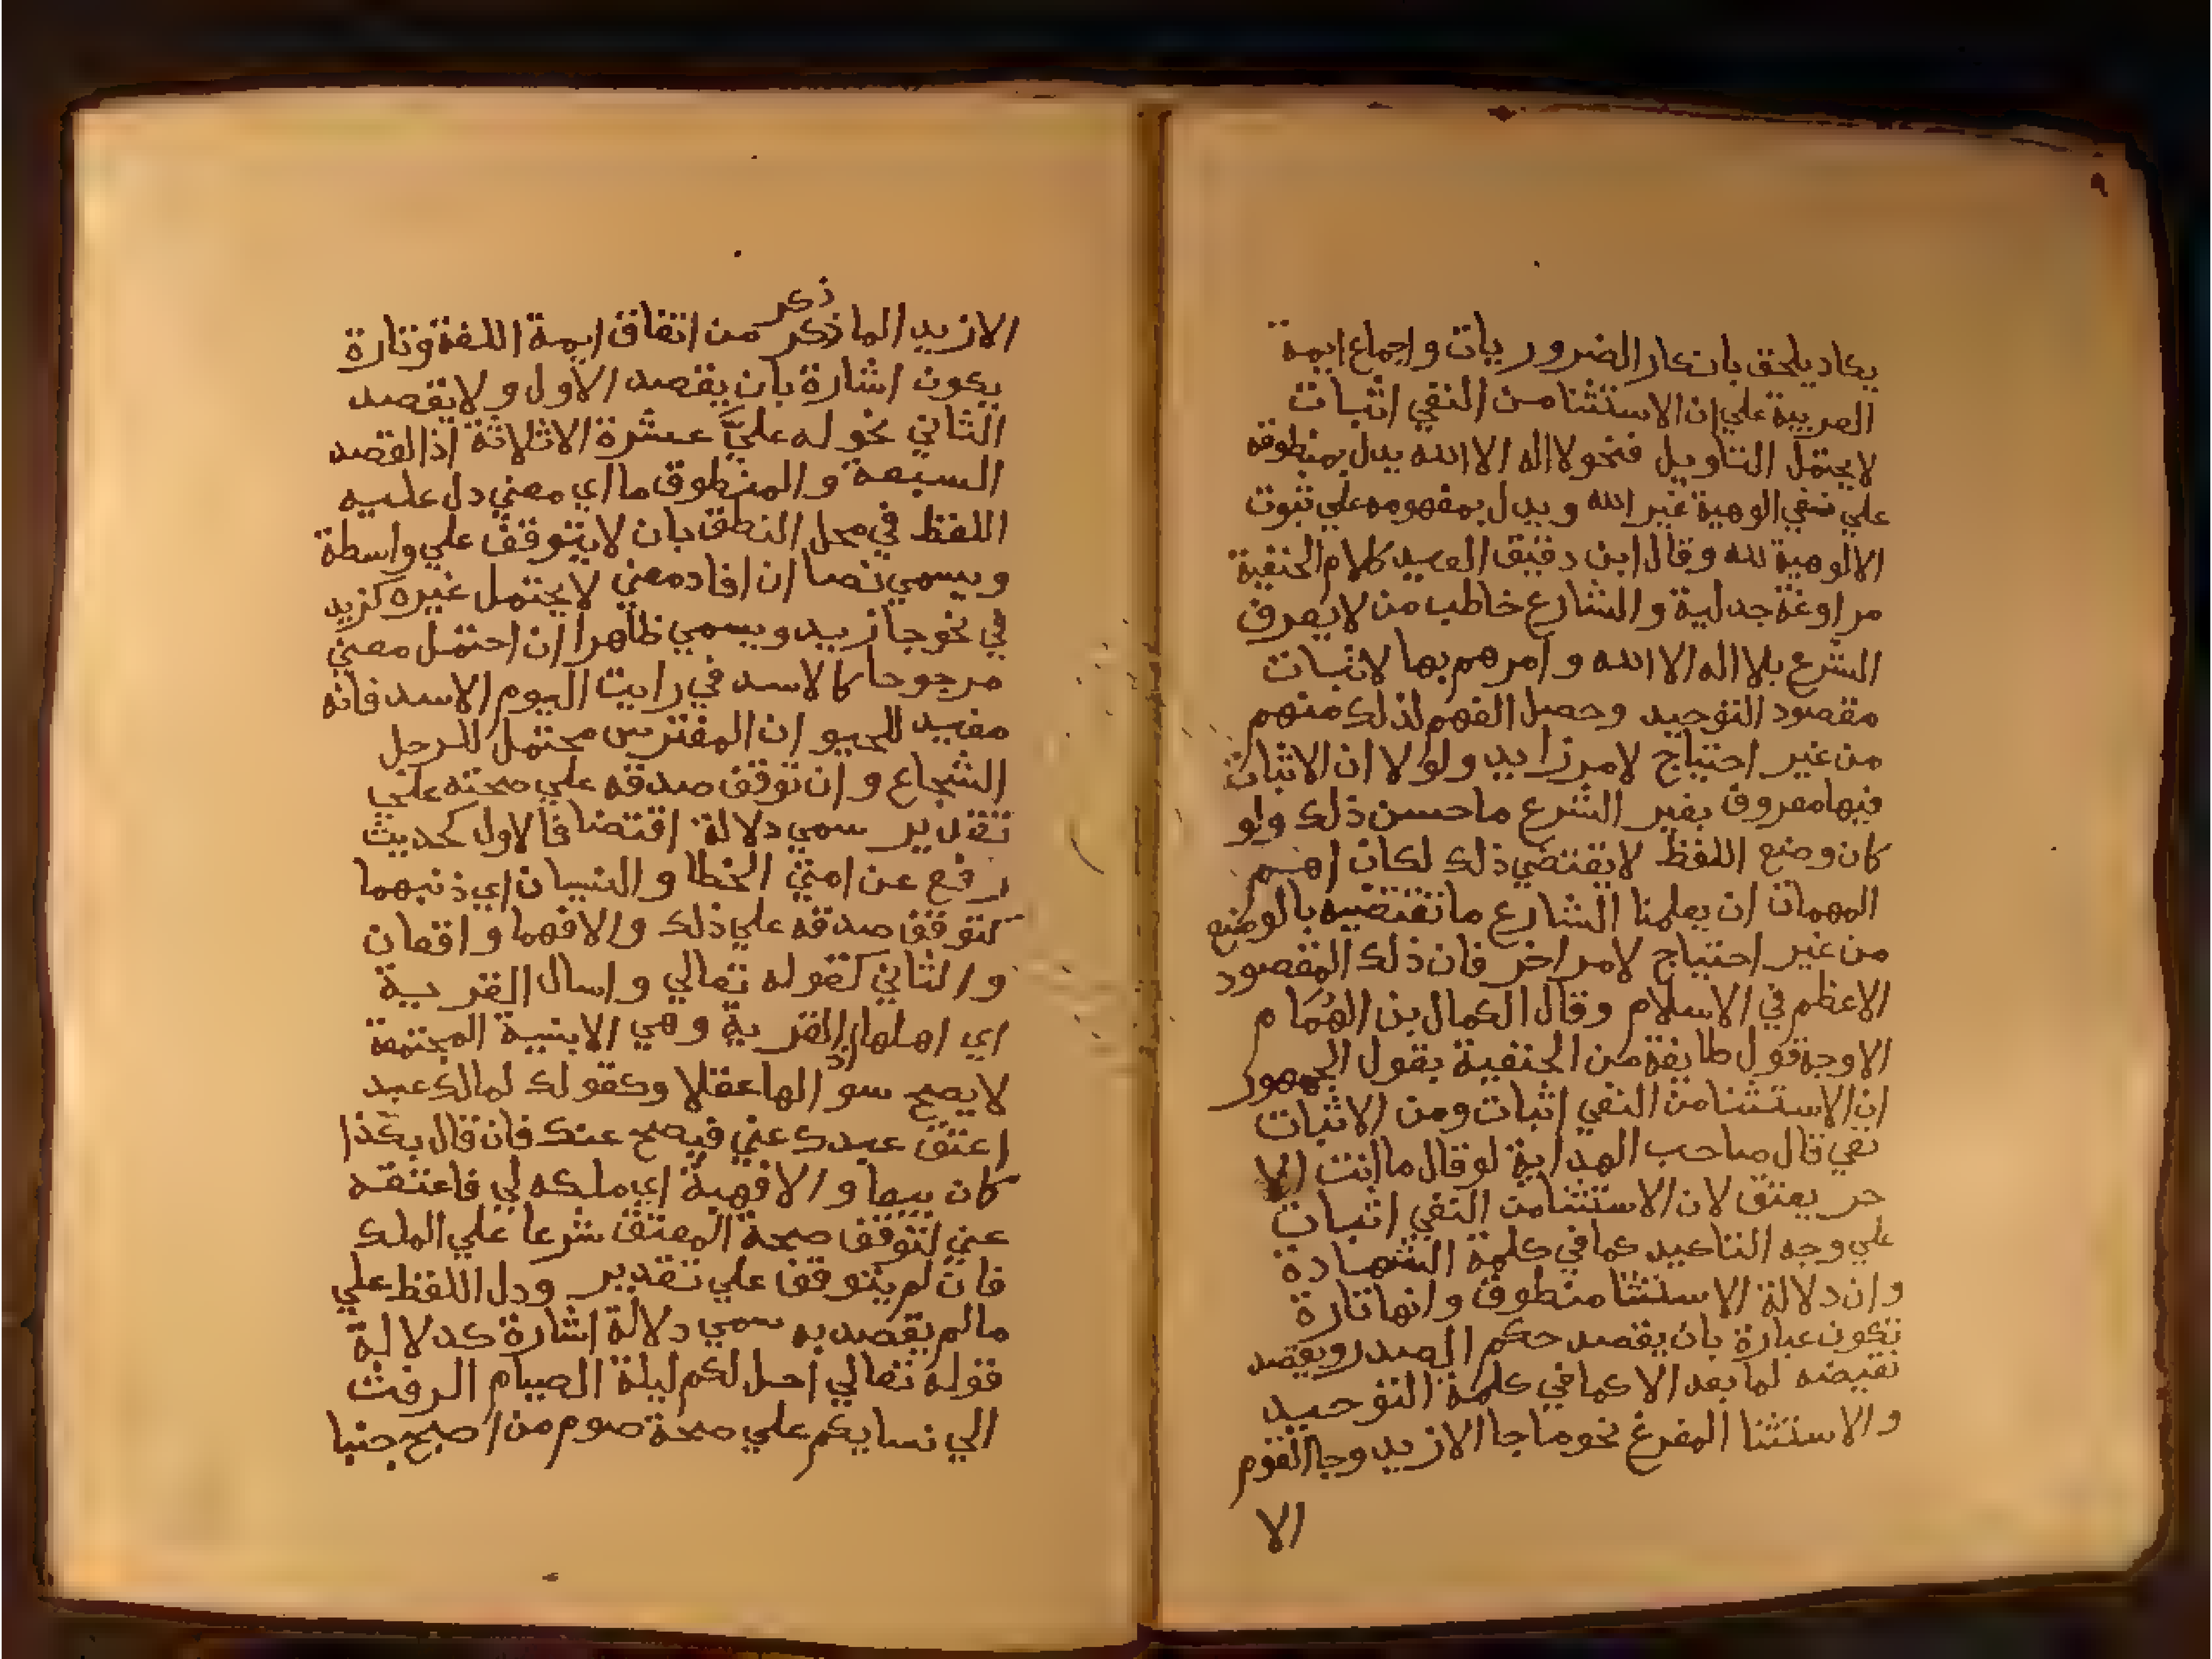 يكاد يلحق بانكار الضروريات واجماع ايمة
العربية علي ان الاستثنا من النفي اثبات
لا يحتمل التاويل فنحو لا اله الا الله يدل بمنطوقه
علي نفي الوهية غير الله ويدل بمفهومه علي ثبوت
الالوهية لله وقال ابن دقيق العيد كلام الحنفية
مراوغة جدلية والشارع خاطب من لا يعرف
الشرع بلا اله الا الله وامرهم بها لاثبات
مقصود التوحيد وحصل الفهم لذلك منهم
من غير احتياج لامر زايد ولولا ان الاثبات
فيها معروف بغير الشرع ما حسن ذلك ولو
كان وضع اللفظ لا يقتضي ذلك لكان اهم
المهمات ان يعلمنا الشارع ما تقتضيه بالوضع
من غير احتياج لامر اخر فان ذلك المقصود
الاعظم في الاسلام وقال الكمال بن الهُمَام
الاوجة قول طايفة من الحنفية بقول الجمهور
ان الاستثنا من النفي اثبات ومن الاثبات
نفي قال صاحب الهداية لو قال ما انت الا
حر يعتق لان الاستثنا من النفي اثبات
علي وجه التاكيد كما في كلمة الشهادة
وان دلالة الاستثنا منطوق وانها تارة
تكون عبارة بان يقصد حكم الصدر ويقصد
نقيضه لما بعد الا كما في كلمة التوحيد
والاستثنا المفرغ نحو ما جا الا زيد وجا القوم
الا
الا زيد الما ذكر ذكر من اتفاق ايمة اللغة وتارة
يكون اشارة بان يقصد الاول ولا يقصد
الثاني نحو له عليَّ عشرة الا ثلاثة اذ القصد
السبعة والمنطوق ما اي معني دل عليه
اللفظ في محل النطق بان لا يتوقف علي واسطة
ويسمي نصا ان افاد معني لا يحتمل غيره كزيد
في نحو جا زيد ويسمي ظاهرا ان احتمل معني
مرجوحا كالاسد في رايت اليوم الاسد فانه
مفيد للحيوان المفترس محتمل للرجل
الشجاع وان توقف صدقه علي صحته علي
تقدير سمي دلالة اقتضا فالاول كحديث
رفع عن امتي الخطا والنسيان اي ذنبهما
لتوقف صدقه علي ذلك والا فهما واقعان
والثاني كقوله تعالي واسال القرية
اي اهلها اذ القرية وهي الابنية المجتمعة
لا يصح سوالها عقلا وكقولك لمالك عبد
اعتق عبدك عني فيصح عنك فان قال بكذا
كان بيعا والا فهبة اي ملكه لي فاعتقه
عني لتوقف صحة المعتق شرعا علي الملك
فان لم يتوقف علي تقدير ودل اللفظ علي
ما لم يقصد به سمي دلالة اشارة كدلالة
قوله تعالي احل لكم ليلة الصيام الرفث
الي نسايكم علي صحة صوم من اصبح جنبا